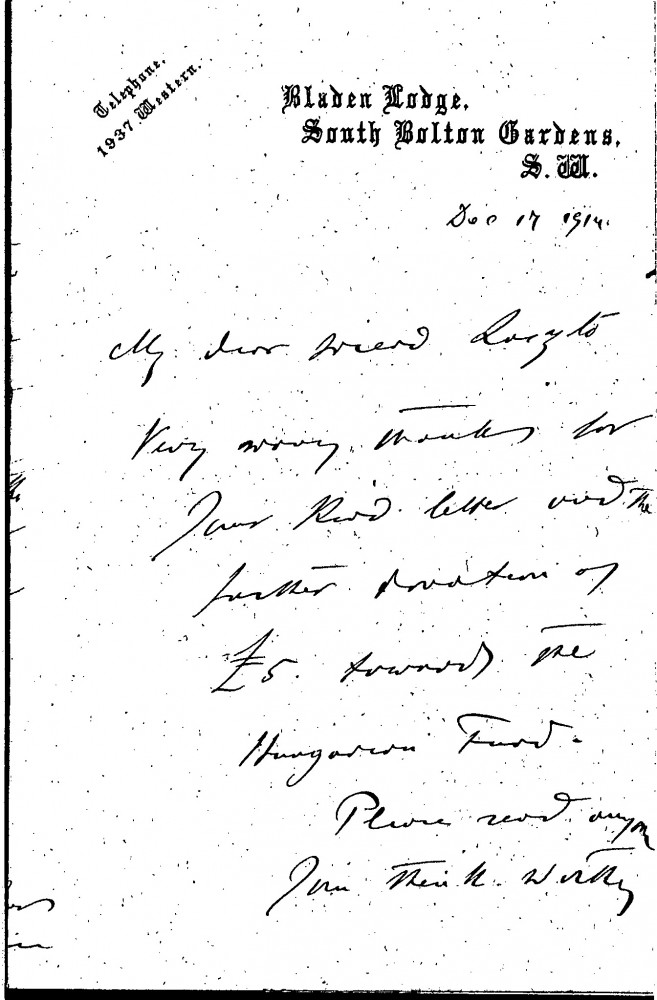 Telephone.
1937. Western.
Bladen Lodge,
South Bolton Gardens,
S.W.
Dec 17 1914.
My dear friend
Very many thanks for
Your kind letter and the
further donation of
£5. towards the
Hungarian Fund.
Please send anyone
You think worthy